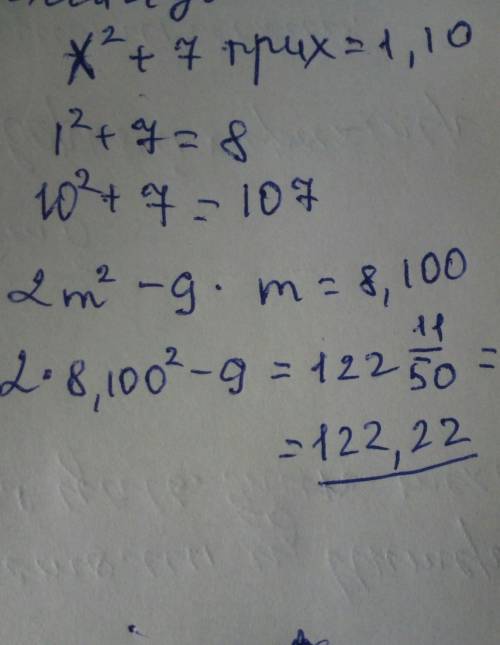 x² + 7 при x = 1, 10
1² + 7 = 8
10² + 7 = 107
2m² - 9 · m = 8, 100
2 · 8,100² - 9 = 122 11/50 =
= 122,22